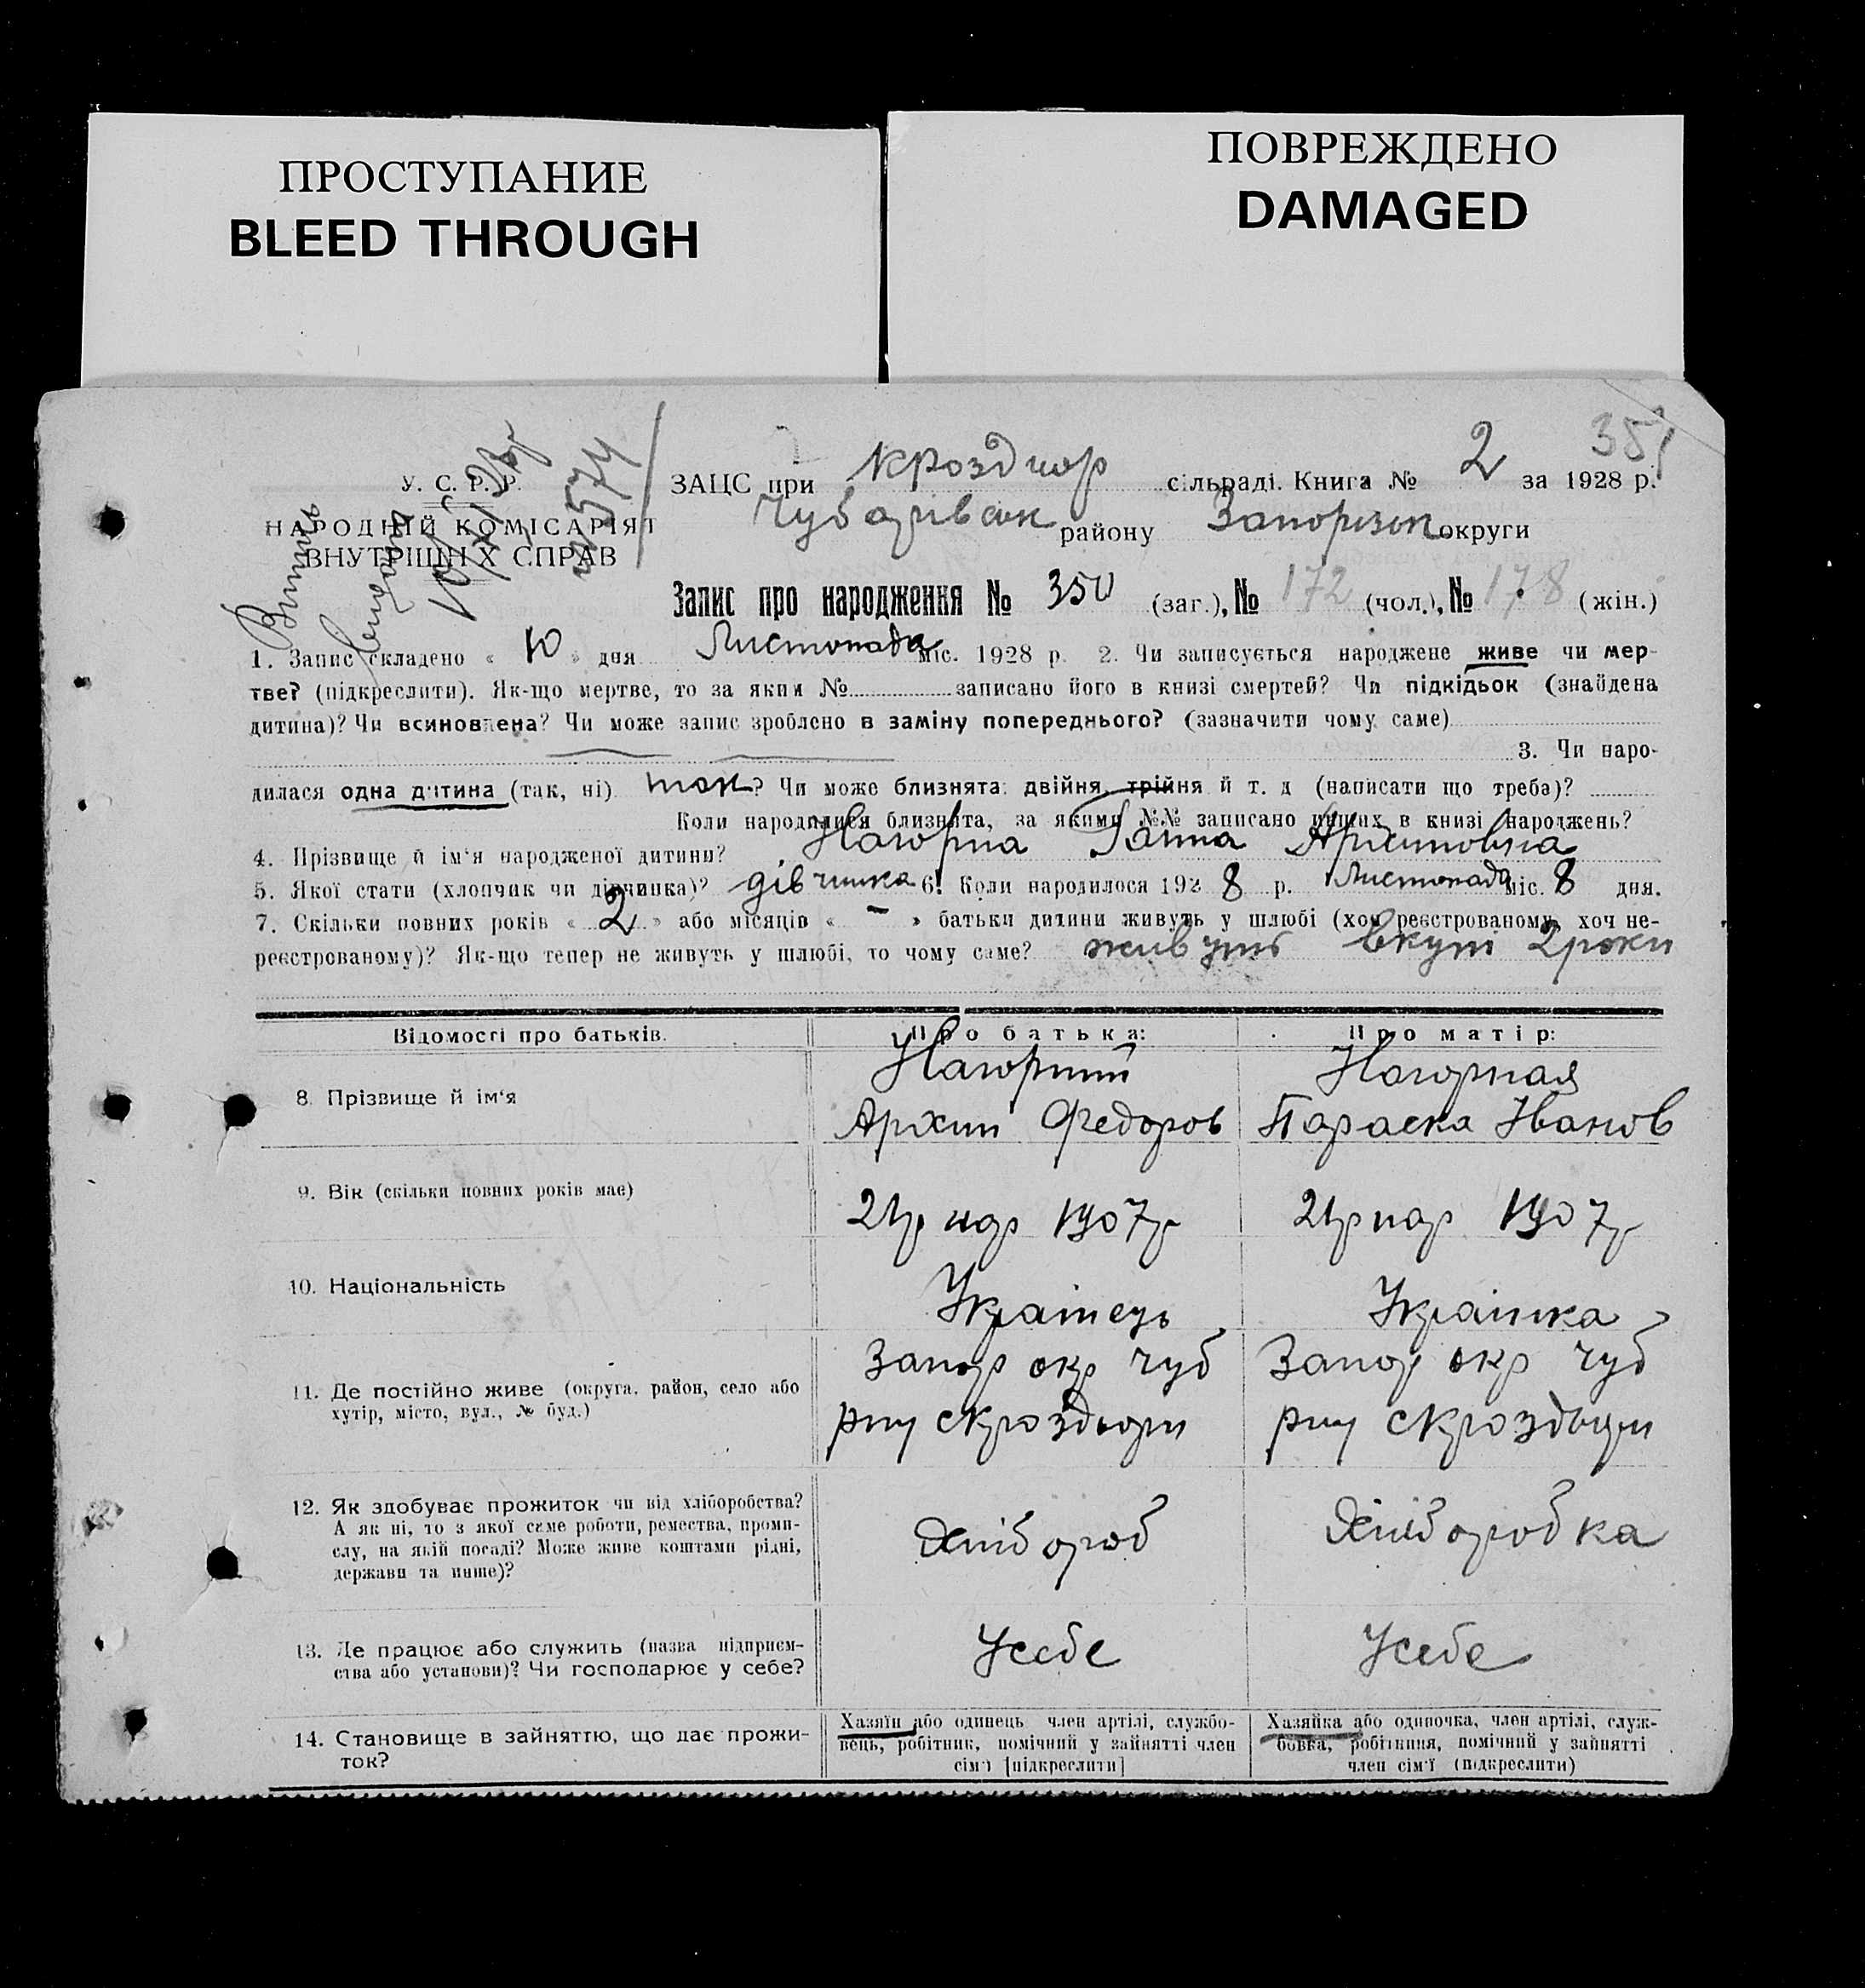 ПРОСТУПАНИЕ
BLEED THROUGH
ПОВРЕЖДЕНО
DAMAGED
351
У. С. Р. Р.
НАРОДНІЙ КОМІСАРІЯТ
ВНУТРІШНІХ СПРАВ
№ 574
ЗАЦС при Кроздиор сільраді. Книга № 2 за 1928 р.
Чубарівськ району Запорізьк округи
Запис про народження № 350 (заг.), № 172 (чол.), № 178 (жін.)
1. Запис складено « 10 » дня Листопада міс. 1928 р. 2. Чи записується народжене живе чи мер-
тве? (підкреслити). Як-що мертве, то за яким № записано його в книзі смертей? Чи підкідьок (знайдена
дитина)? Чи всиновлена? Чи може запис зроблено в заміну попереднього? (зазначити чому саме)
3. Чи наро-
дилася одна дитина (так, ні) так? Чи може близнята: двійня, трійня й т. д (написати що треба)?
Коли народилися близнята, за якими №№ записано инших в книзі народжень?
4. Прізвище й ім'я народженої дитини? Нагорна Ганна Архиповна
5. Якої стати (хлопчик чи дівчинка)? дівчинка 6. Коли народилося 192 8 р. Листопада міс. 8 дня.
7. Скільки повних років « 2 » або місяців « – » батьки дитини живуть у шлюбі (хоч реєстрованому, хоч не-
реєстрованому)? Як-що тепер не живуть у шлюбі, то чому саме? живуть вкупі 2 роки
Відомості про батьків.
Про батька:
Про матір:
8. Прізвище й ім'я
Нагорний
Архип Федоров
Нагорная
Параска Иванов
9. Вік (скільки повних років має)
21р нар 1907р
21р нар 1907р
10. Національність
Українець
Українка
11. Де постійно живе (округа, район, село або
хутір, місто, вул., № буд.)
Запор окр Чуб
рну с Кроздори
Запор окр Чуб
рну с Кроздори
12. Як здобуває прожиток чи від хліборобства?
А як ні, то з якої саме роботи, ремества, проми-
слу, на якій посаді? Може живе коштами рідні,
держави та инше)?
Хлібороб
Хліборобка
13. Де працює або служить (назва підприєм-
ства або установи)? Чи господарює у себе?
У себе
У себе
14. Становище в зайняттю, що дає прожи-
ток?
Хазяїн або одинець член артілі, службо-
вець, робітник, помічний у зайнятті член
сім'ї [підкреслити]
Хазяйка або одиночка, член артілі, служ-
бовка, робітниця, помічний у зайнятті
член сім'ї (підкреслити)